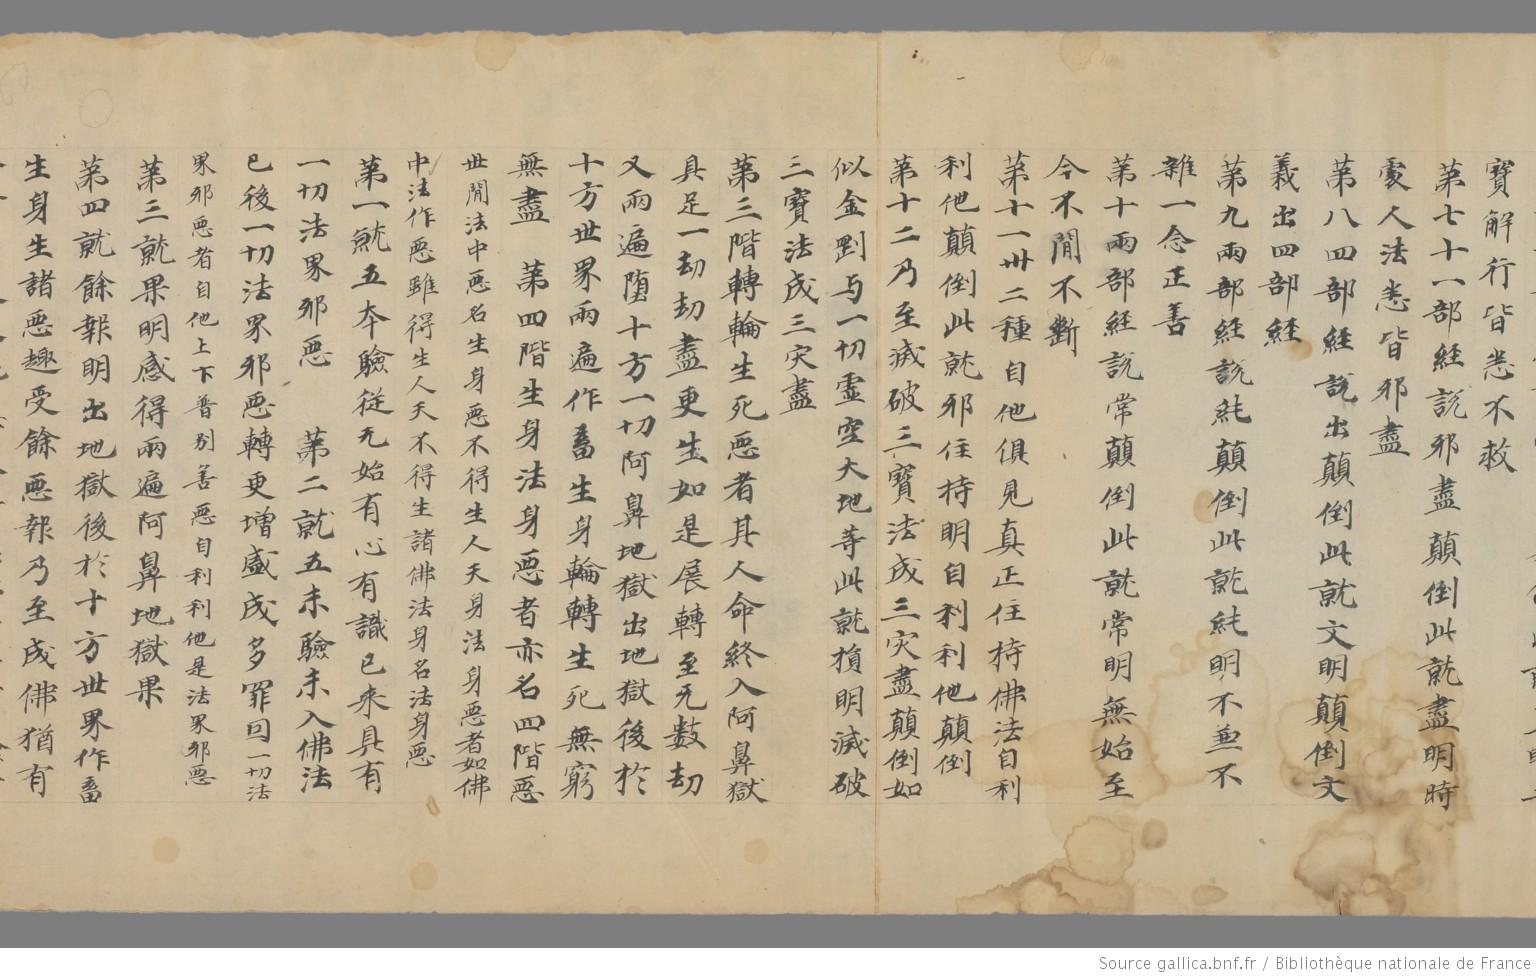 寶解行皆悉不救
第七十一部經說邪盡顛倒此就盡明時
處人法悉皆邪盡
第八四部經說出顛倒此就文明顛倒文
義出四部經
第九兩部經說純顛倒此就純明不兼不
雜一念正善
第十兩部經說常顛倒此就常明無始至
今不閒不斷
第十一卅二種自他俱見真正住持佛法自利
利他顛倒此就邪住持明自利利他顛倒
第十二乃至滅破三寶法成三灾盡顛倒如
似金剛与一切虛空大地等此就損明滅破
三寶法成三灾盡
第三階轉輪生死惡者其人命終入阿鼻獄
具足一劫劫盡更生如是展轉至无數劫
又兩遍墮十方一切阿鼻地獄出地獄後於
十方世界兩遍作畜生身輪轉生死無窮
無盡 第四階生身法身惡者亦名四階惡
世閒法中惡名生身惡不得生人天身法身惡者如佛
中法作惡雖得生人天不得生諸佛法身名法身惡
第一就五夲驗從无始有心有識已來具有
一切法界邪惡 第二就五末驗末入佛法
已後一切法界邪惡轉更增盛成多罪囙一切法
界邪惡者自他上下普別善惡自利利他是法界邪惡
第三就果明感得兩遍阿鼻地獄果
第四就餘報明出地獄後於十方世界作畜
生身生諸惡趣受餘惡報乃至成佛猶有
Source gallica.bnf.fr / Bibliothèque nationale de France